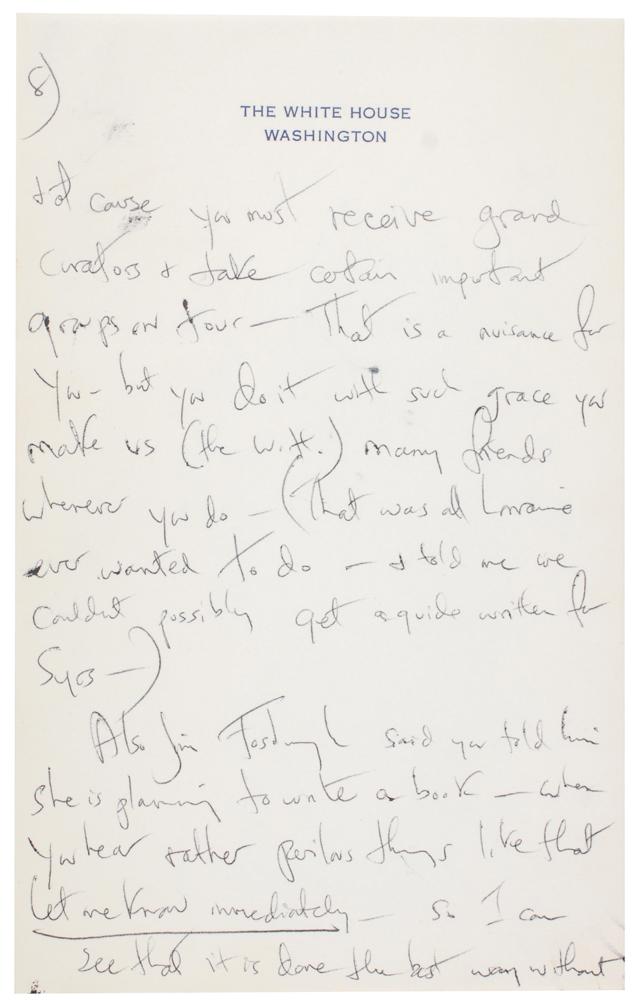 8)
THE WHITE HOUSE
WASHINGTON
+ of cause you must receive grand
curators + take certain important
groups on tour — That is a nuisance for
you — but you do it with such grace you
make us (the W.H.) many friends
whenever you do — (That was all Lorraine
ever wanted to do — + told me we
couldn't possibly get a guide written for
5 yrs —)
Also Jim said you told him
she is planning to write a book — when
you hear rather perilous things like that
let me know immediately — so I can
see that it is done the best way without